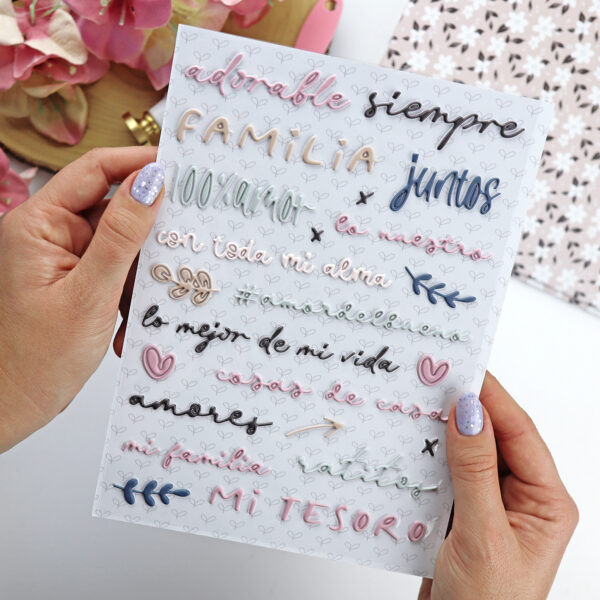 adorable siempre
FAMiLiA
juntos
100%amor
lo nuestro
con toda mi alma
#amordelbueno
lo mejor de mi vida
cosas de casa
amores
mi familia
ratitos
Mi TESORO